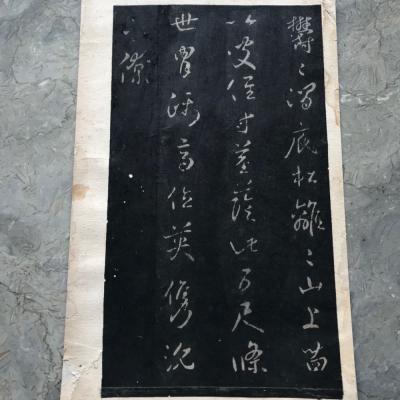 樊濤〻澗底松離〻山上苗
以彼徑寸莖蔭此百尺條
世胄躡高位英俊沉
下僚